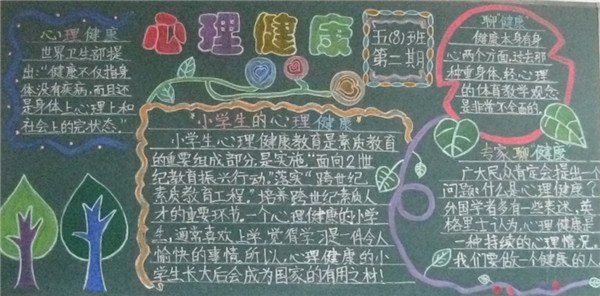 心理健康
五(8)班
第二期
心理健康
世界卫生部提
出:“健康不仅指身
体没有疾病,而且还
是身体上心理上和
社会上的完状态。”
小学生的心理健康
小学生心理健康教育是素质教育
的重要组成部分,是实施“面向21世
纪教育振兴行动”,落实“跨世纪
素质教育工程”,培养跨世纪素质人
才的重要环节。一个心理健康的小学
生,通常喜欢上学,觉得学习是一件令人
愉快的事情,所以,心理健康的小
学生长大后会成为国家的有用之材!
聊“健康”
健康本身有身
心两个方面,过去那
种重身体、轻心理
的体育教学观念
是非常不全面的。
专家聊“健康”
广大民众肯定会提出一个
问题:什么是心理健康?
外国学者多有一些表述,英
格里士认为,心理健康是
一种持续的心理情况。
我们要做一个健康的人